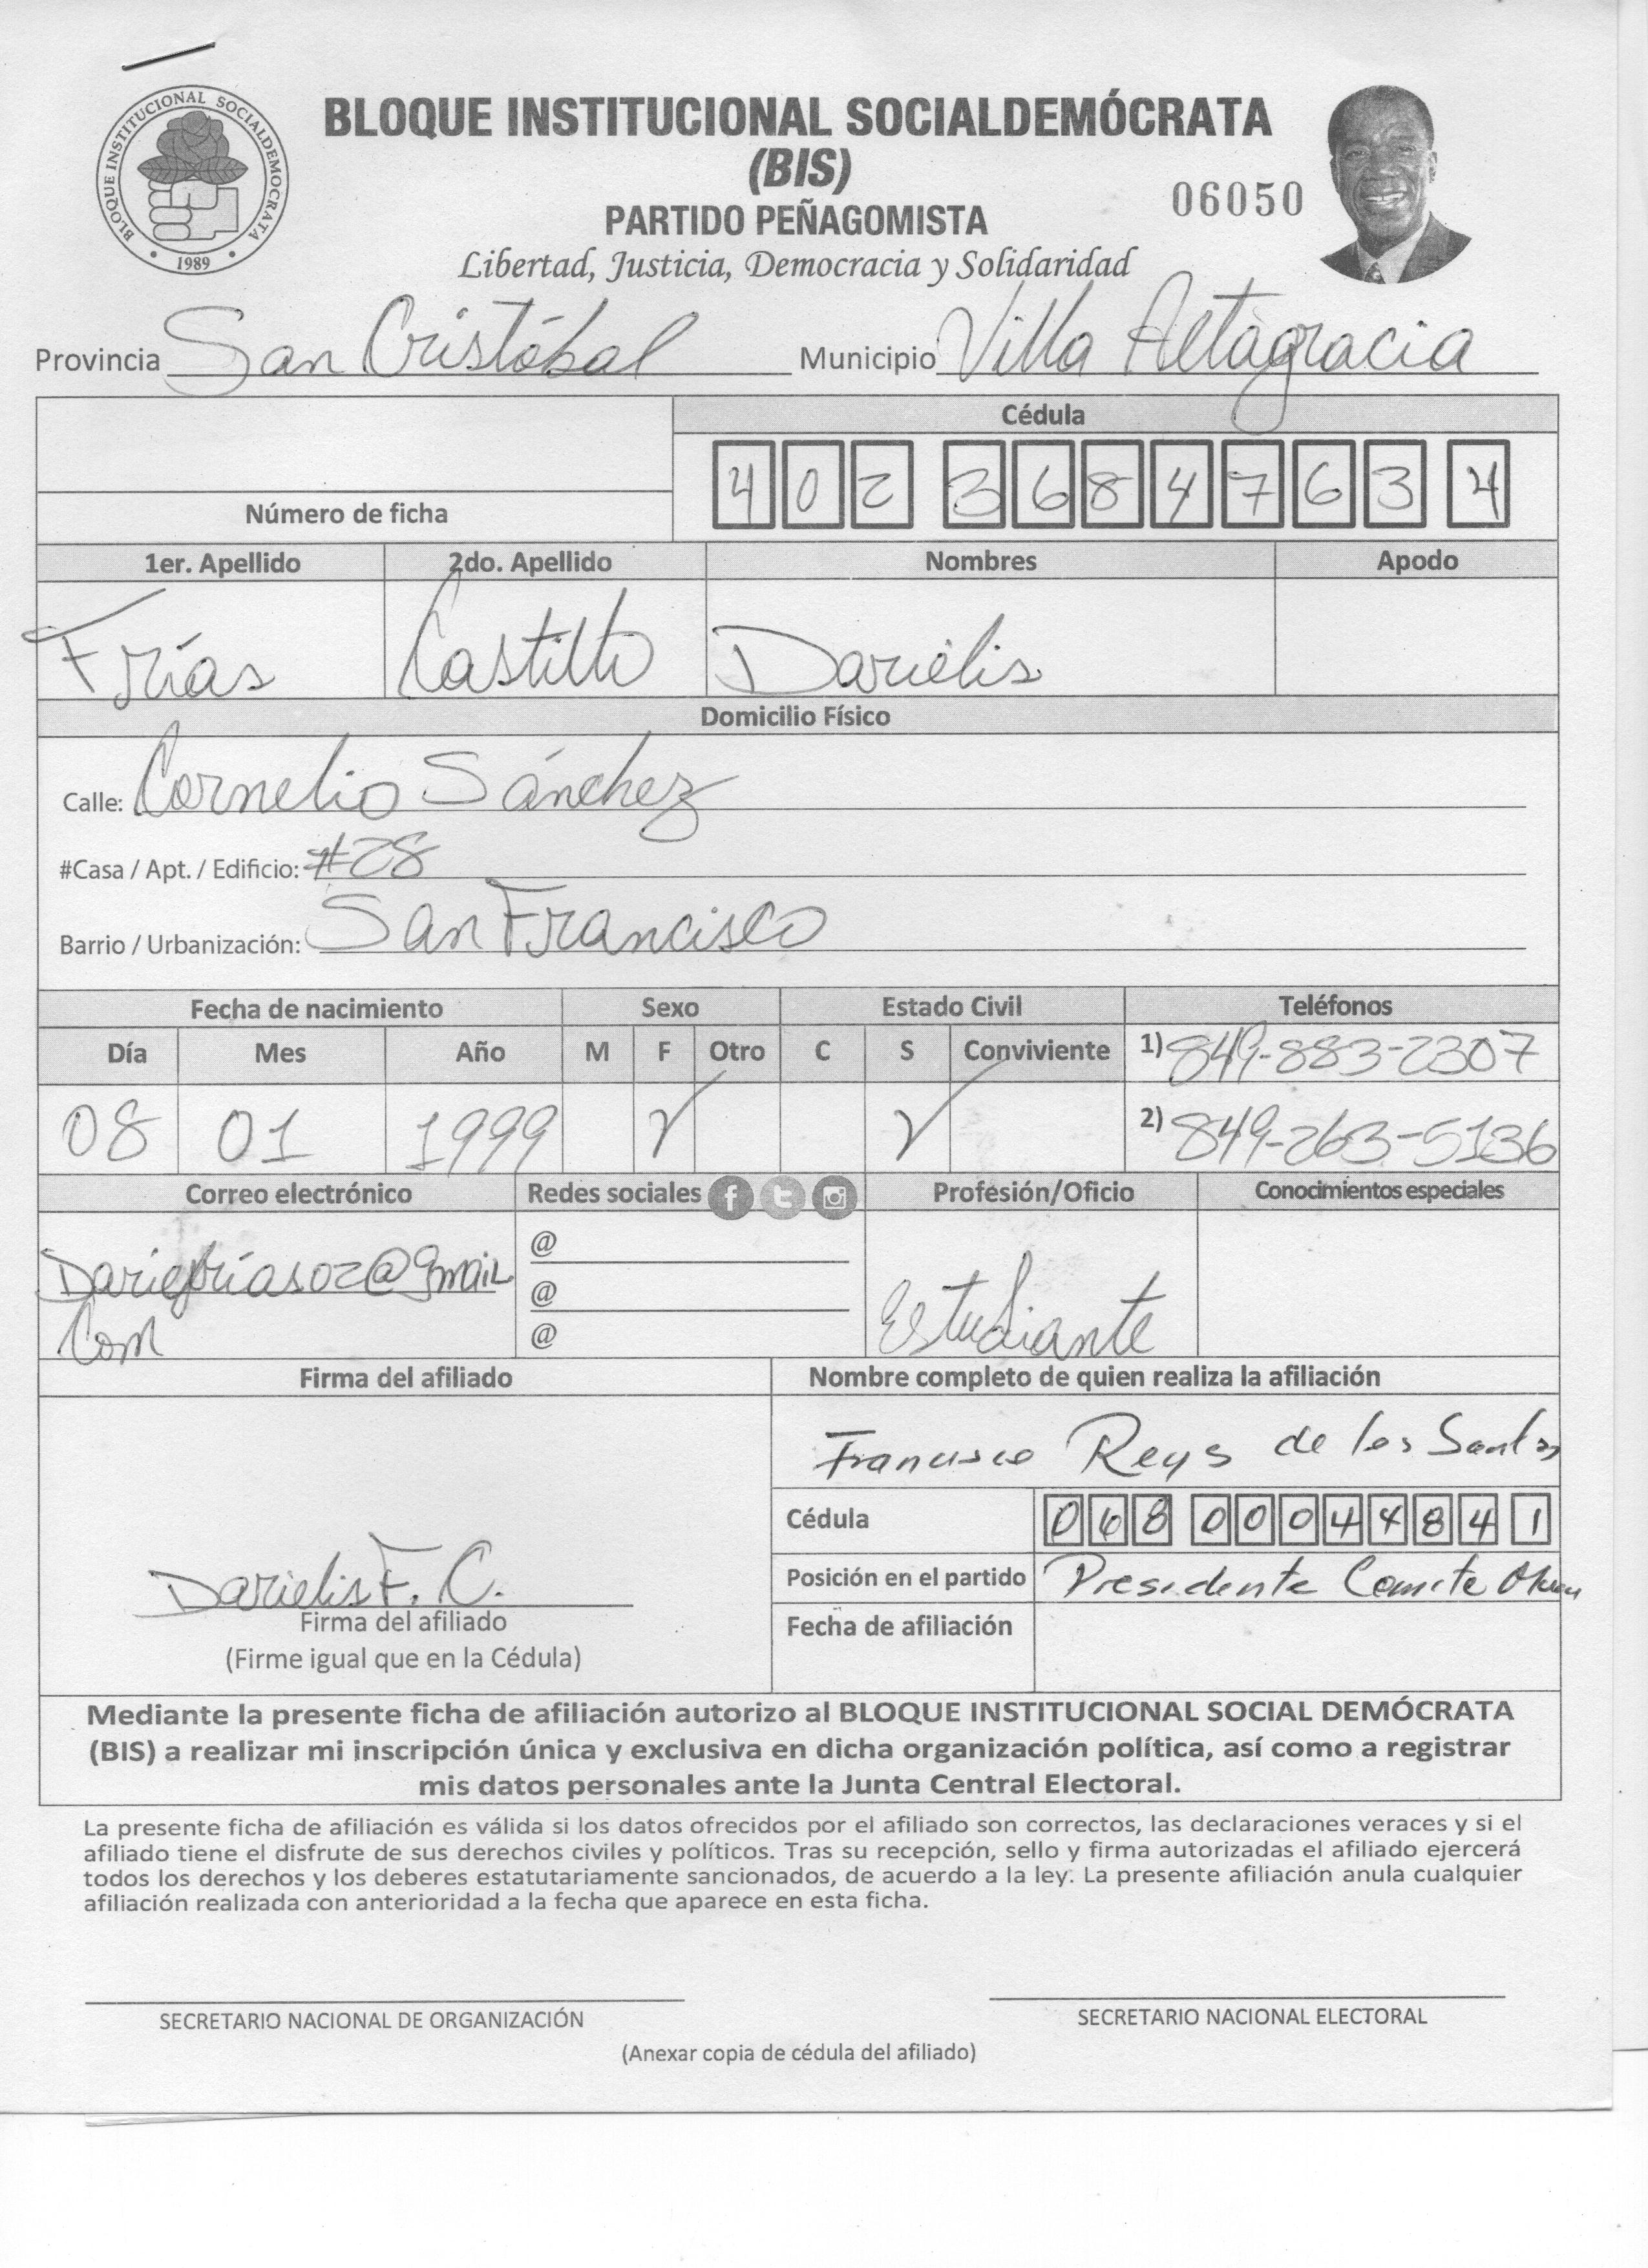 BLOQUE INSTITUCIONAL SOCIALDEMOCRATA
1989
BLOQUE INSTITUCIONAL SOCIALDEMÓCRATA
(BIS)
06050
PARTIDO PEÑAGOMISTA
Libertad, Justicia, Democracia y Solidaridad
Provincia San Cristóbal Municipio Villa Altagracia
Cédula
402 3684763 4
Número de ficha
1er. Apellido 2do. Apellido Nombres Apodo
Frías Castillo Darielis
Domicilio Físico
Calle: Cornelio Sánchez
#Casa / Apt. / Edificio: #28
Barrio / Urbanización: San Francisco
Fecha de nacimiento Sexo Estado Civil Teléfonos
Día Mes Año M F Otro C S Conviviente 1) 849-883-2307
08 01 1999 2) 849-263-5136
Correo electrónico Redes sociales Profesión/Oficio Conocimientos especiales
@
@gmail
@
Com
@
Estudiante
Firma del afiliado Nombre completo de quien realiza la afiliación
Francisco Reys de los Santos
Cédula 068 0004484 1
Darielis F. C.
Posición en el partido Presidente Comite
Firma del afiliado
Fecha de afiliación
(Firme igual que en la Cédula)
Mediante la presente ficha de afiliación autorizo al BLOQUE INSTITUCIONAL SOCIAL DEMÓCRATA
(BIS) a realizar mi inscripción única y exclusiva en dicha organización política, así como a registrar
mis datos personales ante la Junta Central Electoral.
La presente ficha de afiliación es válida si los datos ofrecidos por el afiliado son correctos, las declaraciones veraces y si el
afiliado tiene el disfrute de sus derechos civiles y políticos. Tras su recepción, sello y firma autorizadas el afiliado ejercerá
todos los derechos y los deberes estatutariamente sancionados, de acuerdo a la ley. La presente afiliación anula cualquier
afiliación realizada con anterioridad a la fecha que aparece en esta ficha.
SECRETARIO NACIONAL DE ORGANIZACIÓN SECRETARIO NACIONAL ELECTORAL
(Anexar copia de cédula del afiliado)